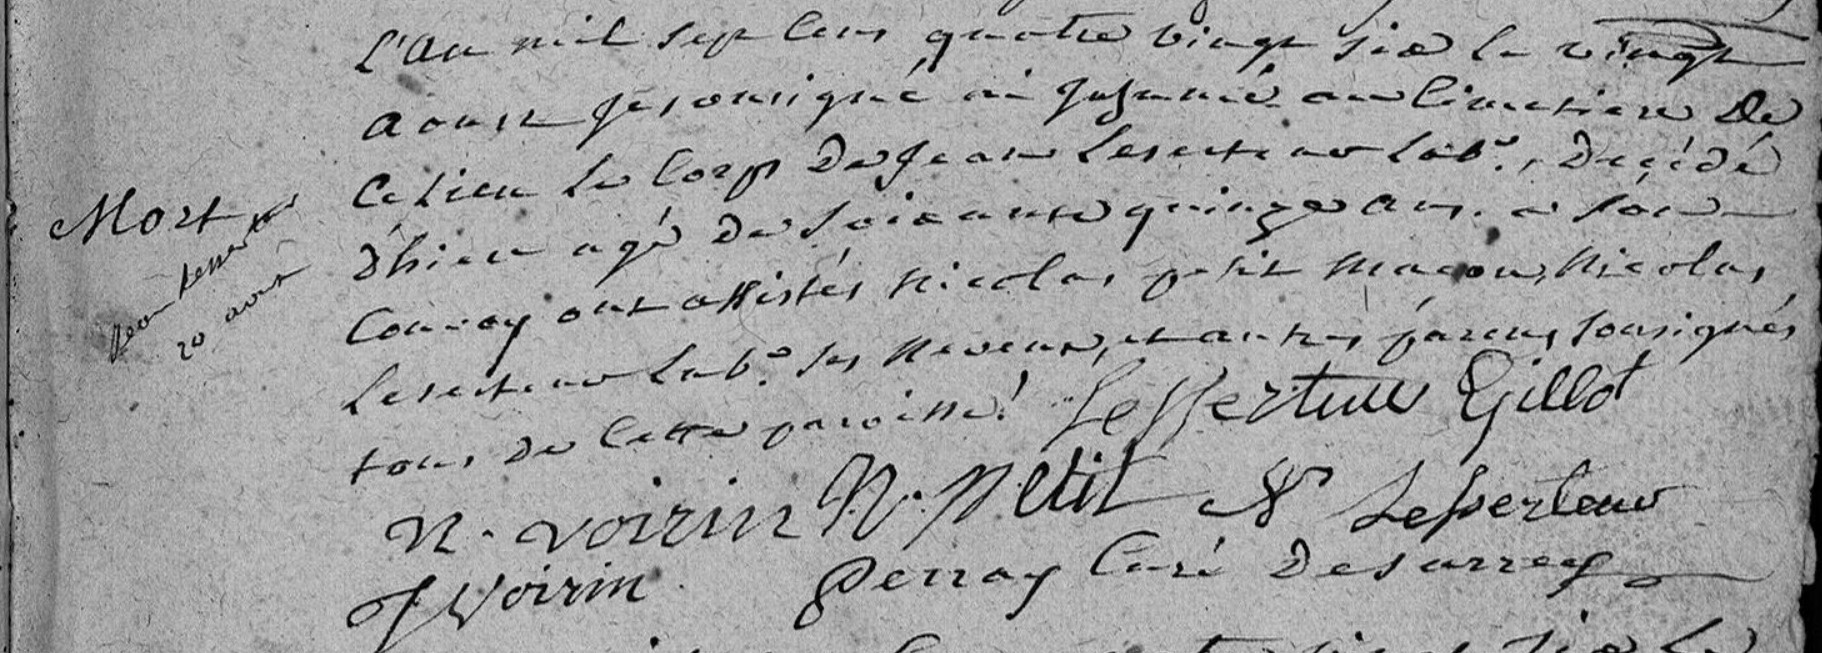 L'an mil sept cens quatre vingt six le vingt
aoust je sousigné ai inhumé au cimetiere De
ce lieu le Corps De Jean Leserteur labr., Decédé
D'hier agé De soixante quinze ans. a son
Convoy ont assistés Nicolas petit maçon, Nicolas
Leserteur labr. ses neveux, et autres parens sousignés
tous De cette paroisse!
Mort
Jean
20 aoust
Lesserteur Gillot
N. voirin N. petit N Leserteur
J Voirin Perray Curé De Sarrey